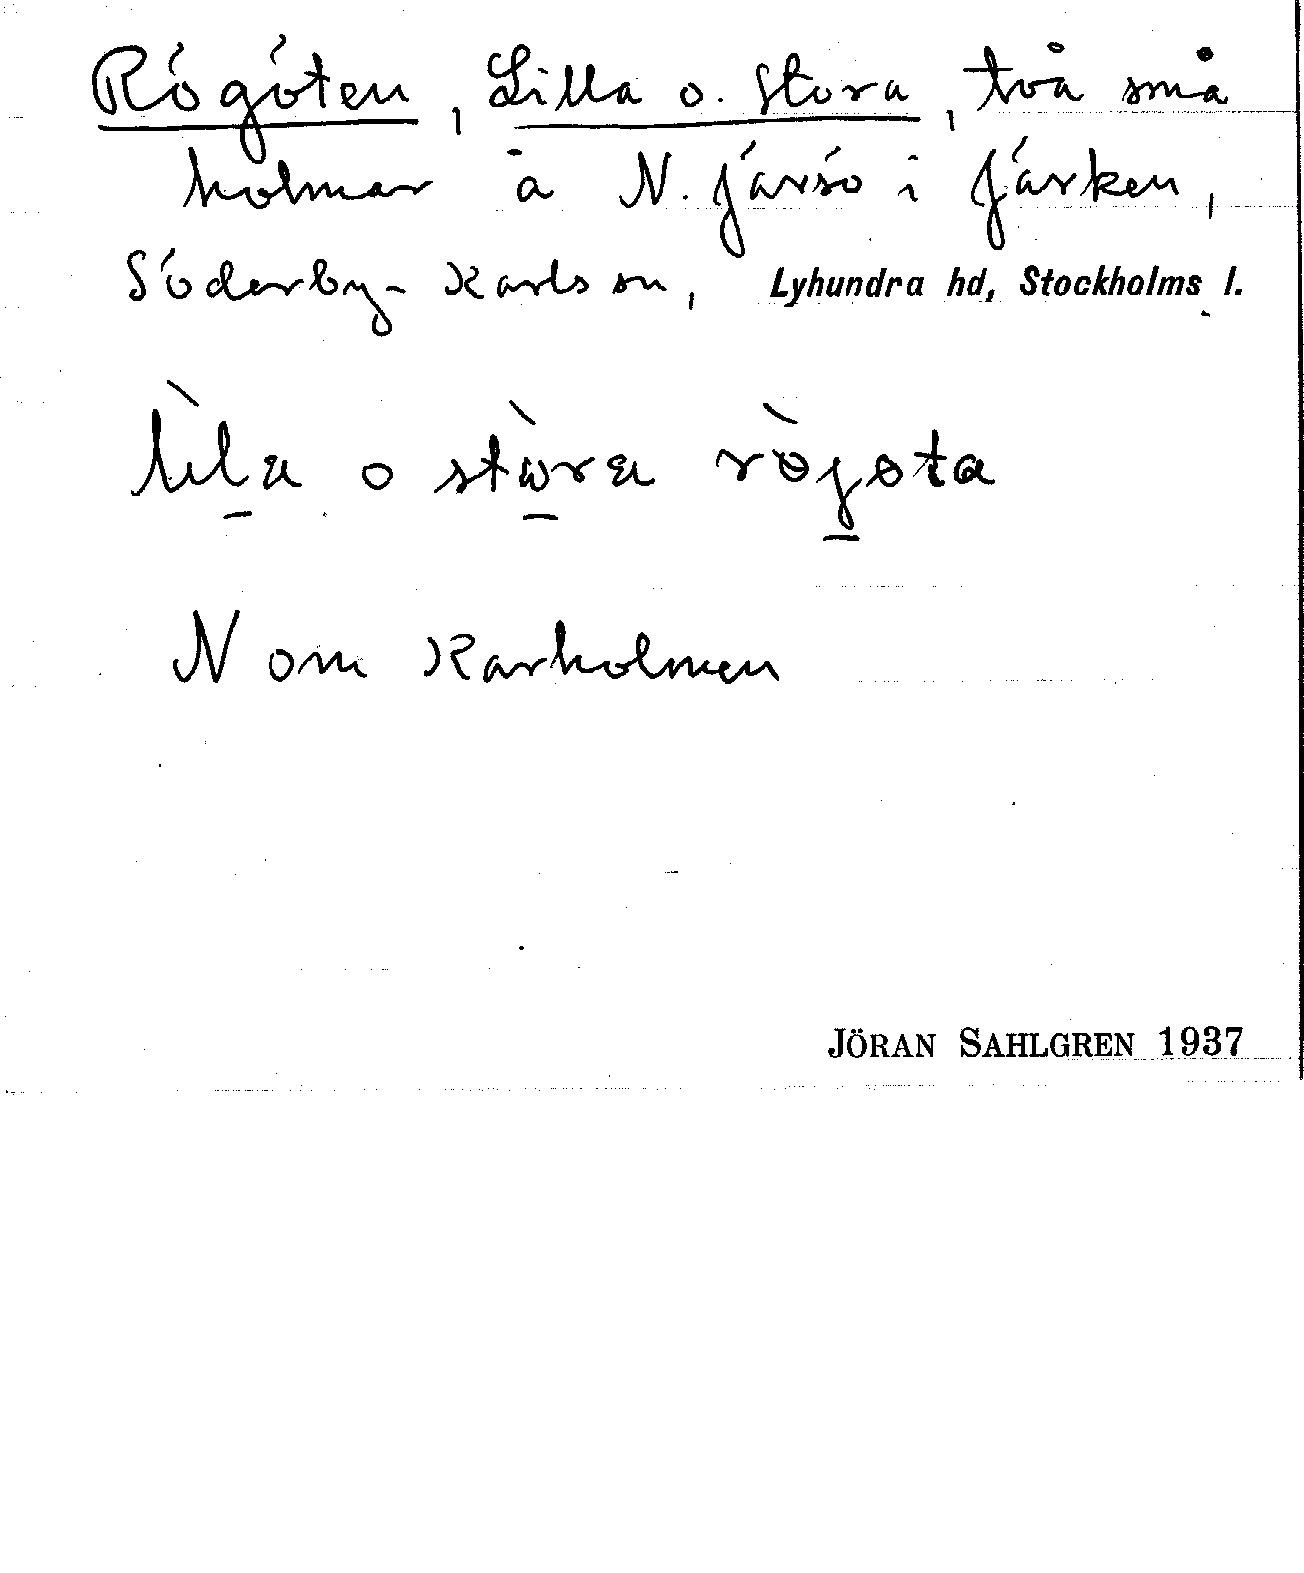 Rögöten, Lilla o. Stora, två små
holmar å N. Järsö i Järken,
Söderby-Karls sn, Lyhundra hd, Stockholms l.
lìla o stòra rö̀jøta
N om Karholmen
JÖRAN SAHLGREN 1937